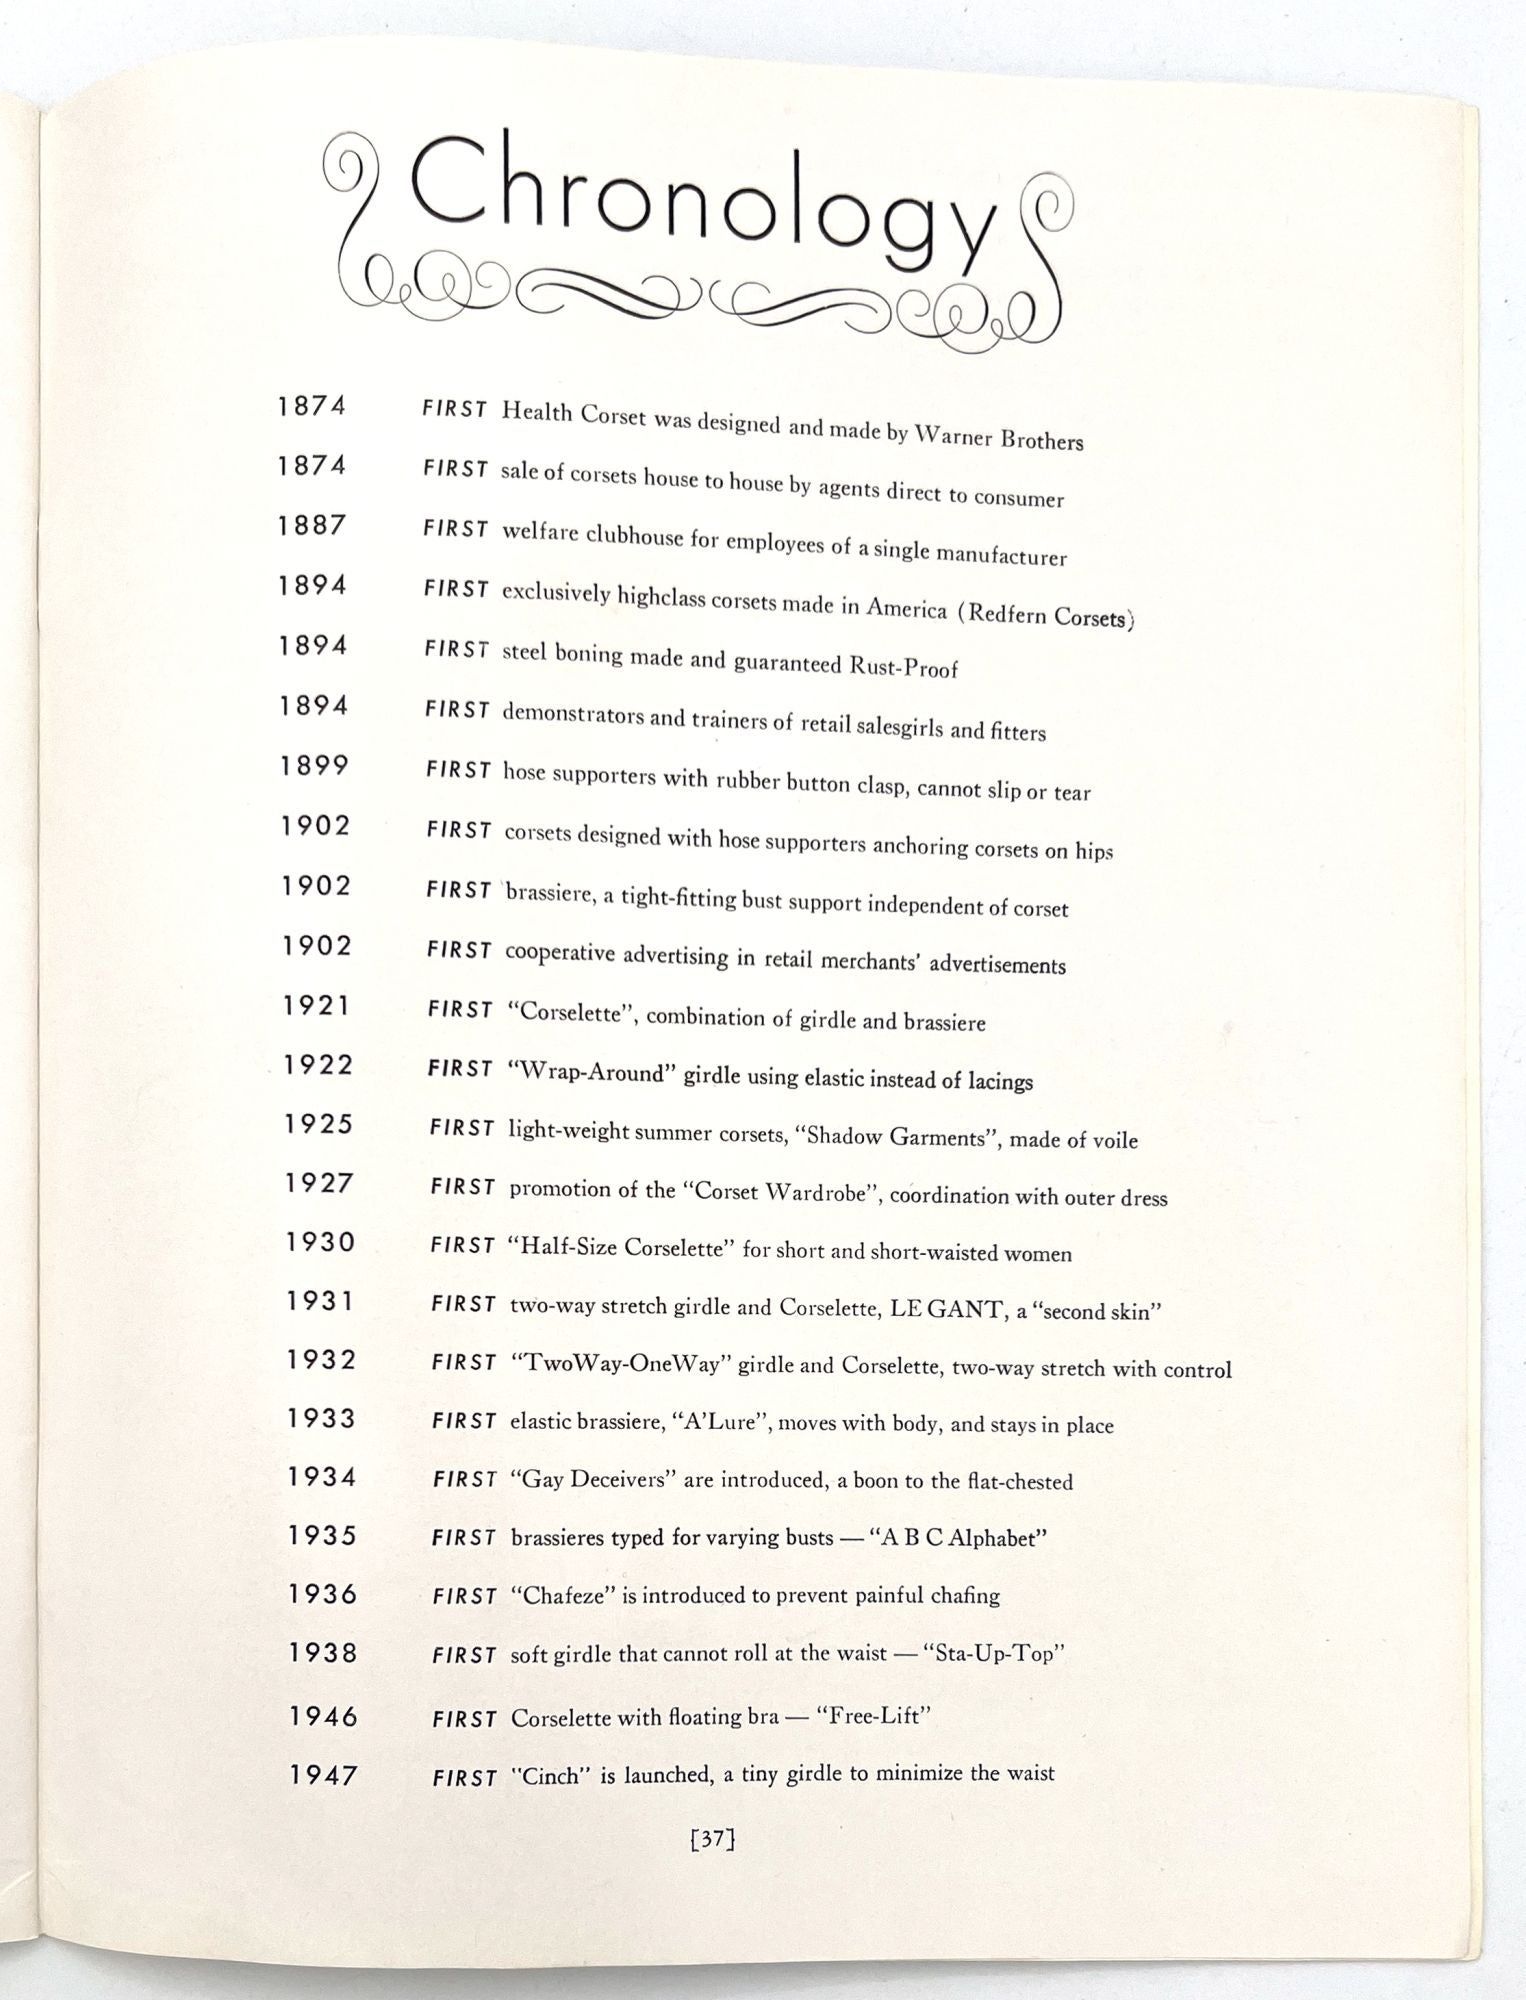 Chronology
1874 FIRST Health Corset was designed and made by Warner Brothers
1874 FIRST sale of corsets house to house by agents direct to consumer
1887 FIRST welfare clubhouse for employees of a single manufacturer
1894 FIRST exclusively highclass corsets made in America (Redfern Corsets)
1894 FIRST steel boning made and guaranteed Rust-Proof
1894 FIRST demonstrators and trainers of retail salesgirls and fitters
1899 FIRST hose supporters with rubber button clasp, cannot slip or tear
1902 FIRST corsets designed with hose supporters anchoring corsets on hips
1902 FIRST brassiere, a tight-fitting bust support independent of corset
1902 FIRST cooperative advertising in retail merchants' advertisements
1921 FIRST “Corselette”, combination of girdle and brassiere
1922 FIRST “Wrap-Around” girdle using elastic instead of lacings
1925 FIRST light-weight summer corsets, “Shadow Garments”, made of voile
1927 FIRST promotion of the “Corset Wardrobe”, coordination with outer dress
1930 FIRST “Half-Size Corselette” for short and short-waisted women
1931 FIRST two-way stretch girdle and Corselette, LE GANT, a “second skin”
1932 FIRST “TwoWay-OneWay” girdle and Corselette, two-way stretch with control
1933 FIRST elastic brassiere, “A’Lure”, moves with body, and stays in place
1934 FIRST “Gay Deceivers” are introduced, a boon to the flat-chested
1935 FIRST brassieres typed for varying busts — “A B C Alphabet”
1936 FIRST “Chafeze” is introduced to prevent painful chafing
1938 FIRST soft girdle that cannot roll at the waist — “Sta-Up-Top”
1946 FIRST Corselette with floating bra — “Free-Lift”
1947 FIRST "Cinch" is launched, a tiny girdle to minimize the waist
[37]